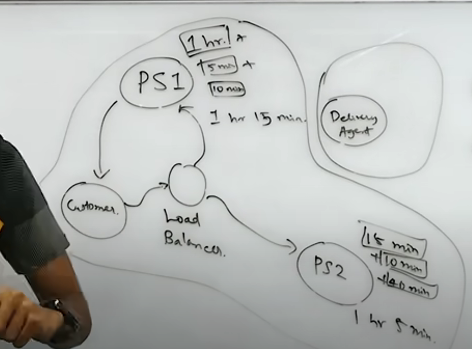 1 hr. +
15 min +
10 min
PS1
1 hr 15 min.
Delivery
Agent
Customer.
Load
Balancer.
PS2
15 min
+10 min
+40 min
1 hr 5 min.